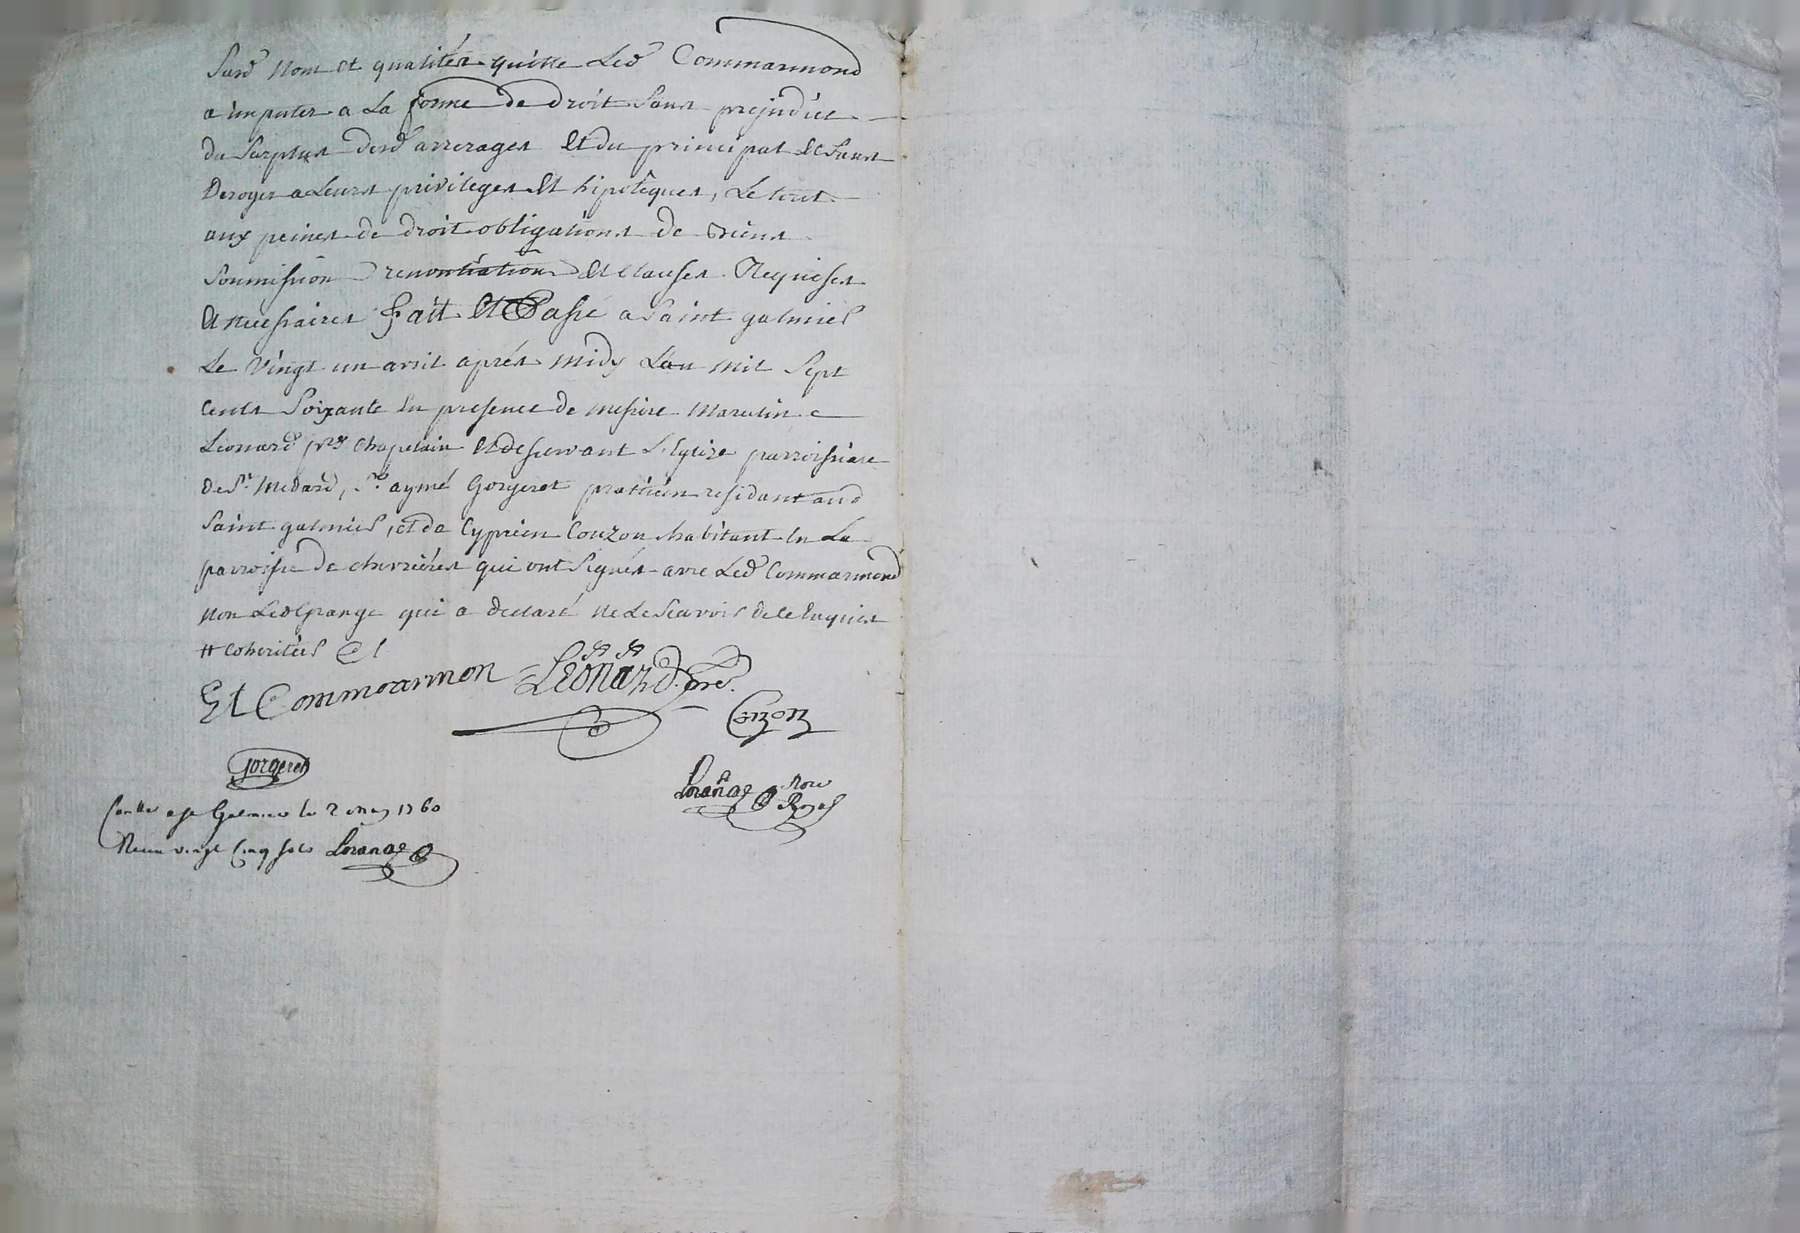 Susd nom et qualités quitte Led Commarmond
a imputer a La forme de droit Sans prejudice
du Surplus desd arrerages Et du principal Et Sans
Deroger a Leurs privileges Et hipotêques, Le tout
aux peines de droit obligations de biens
Soumission renontiation Et clauses Requises
Et necessaires Fait Et Passé a Saint galmier
Le Vingt un avril aprés midy Lan mil Sept
Cents Soixante En presence de messire Maculin
Leonard ptre Chapelain Et desservant L'Eglize parroissiale
de St. Medard, Sr. aymé Gorgeret praticien residant aud
Saint galmier, et de Cyprien Couzon habitant En La
parroisse de chevriéres qui ont Signés avec Led Commarmond
non Led Grange qui a declaré ne Le Scavoir de ce Enquis
# coheritier
Et Commoarmon Leonard. pre.
Conzon
Gorgeret
Lorange Nore
Royal
Conllé a St Galmier le 2 May 1760
Recu vingt Cinq sols Lorange